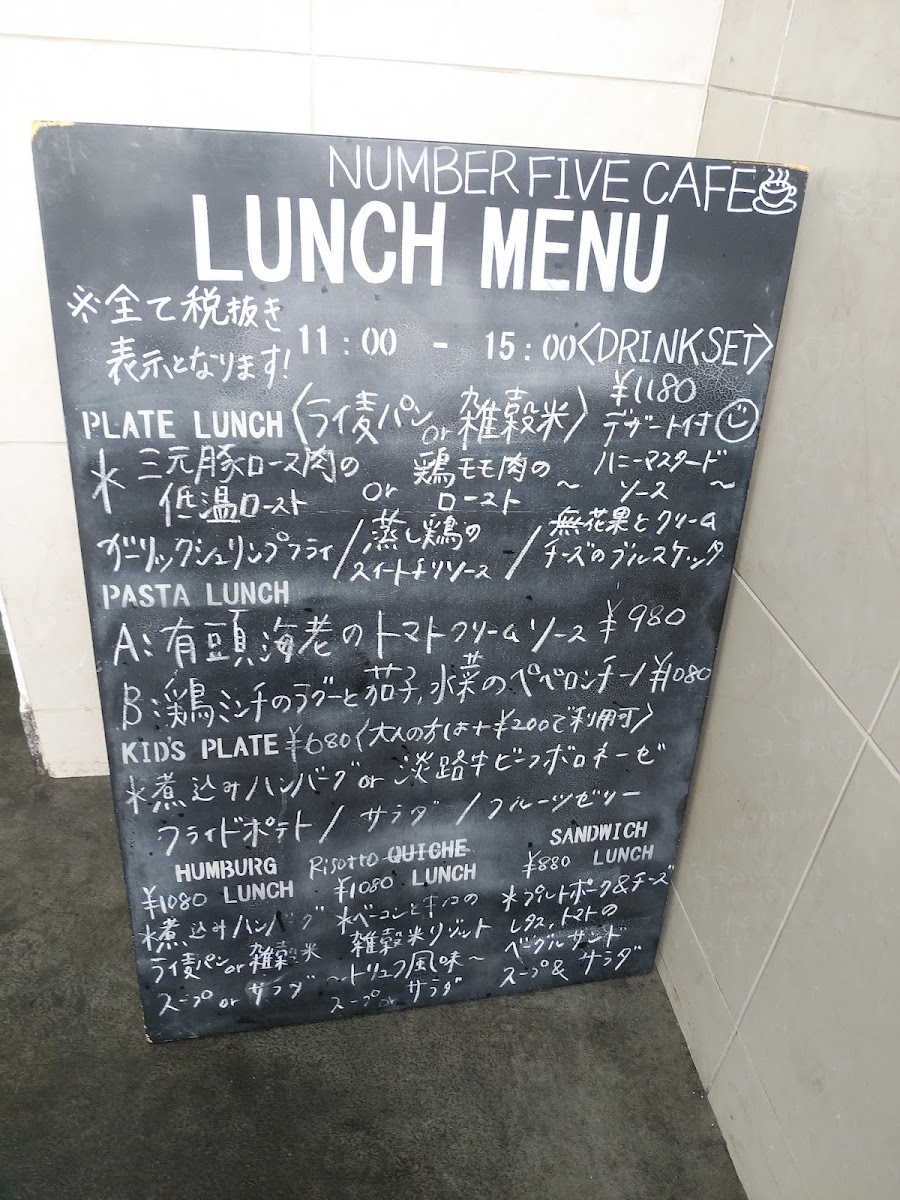 NUMBER FIVE CAFE
LUNCH MENU
※全て税抜き
表示となります!
11:00 - 15:00 <DRINK SET>
PLATE LUNCH 〈ライ麦パン or 雑穀米〉 ¥1180 デザート付
*三元豚ロース肉の低温ロースト or 鶏モモ肉のロースト ~ハニーマスタードソース~
ガーリックシュリンプフライ / 蒸し鶏のスイートチリソース / 無花果とクリームチーズのブルスケッタ
PASTA LUNCH
A:有頭海老のトマトクリームソース ¥980
B:鶏ミンチのラグーと茄子,水菜のペペロンチーノ ¥1080
KID'S PLATE ¥680 〈大人の方は+¥200で利用可〉
*煮込みハンバーグ or 淡路牛ビーフボロネーゼ
フライドポテト / サラダ / フルーツゼリー
HUMBURG
¥1080 LUNCH
*煮込みハンバグ
ライ麦パン or 雑穀米
スープ or サラダ
Risotto QUICHE
¥1080 LUNCH
*ベーコンとキノコの
雑穀米リゾット
~トリュフ風味~
スープ or サラダ
SANDWICH
¥880 LUNCH
*プルトポーク&チーズ
レタス,トマトの
ベーグルサンド
スープ & サラダ